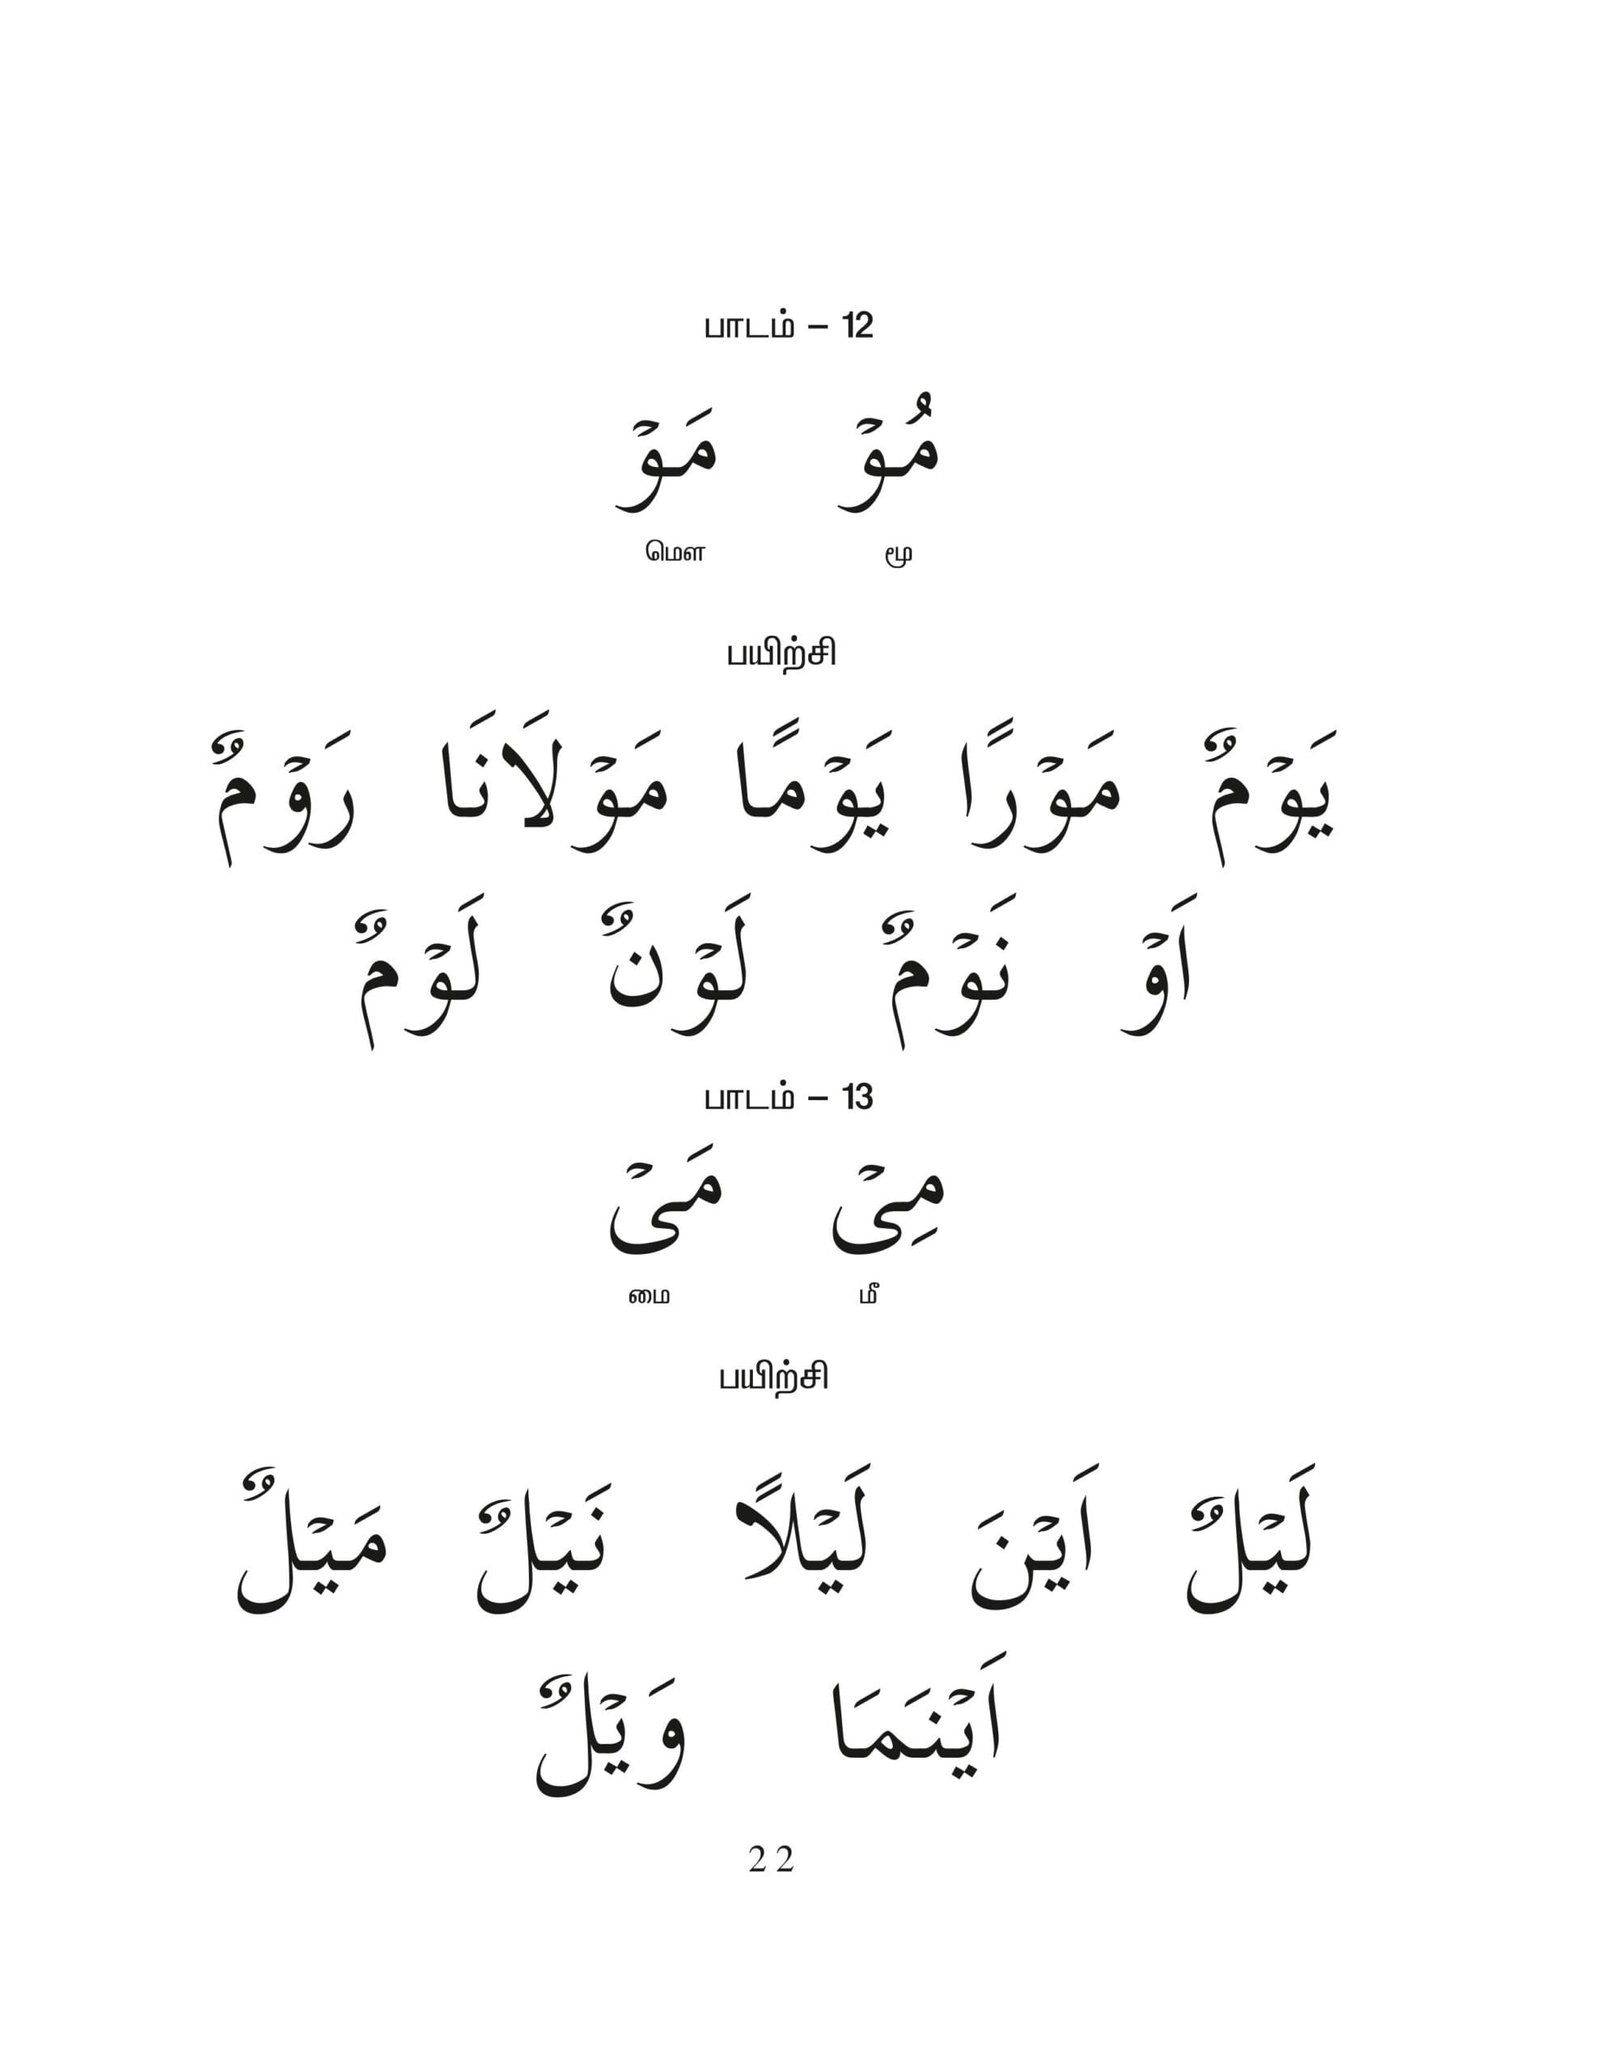 பாடம் – 12
مُوْ مَوْ
மூ மௌ
பயிற்சி
يَوْمٌ مَوْرًا يَوْمًا مَوْلَانَا رَوْمٌ
اَوْ نَوْمٌ لَوْنٌ لَوْمٌ
பாடம் – 13
مِىْ مَىْ
மீ மை
பயிற்சி
لَيْلٌ اَيْنَ لَيْلًا نَيْلٌ مَيْلٌ
اَيْنَمَا وَيْلٌ
22